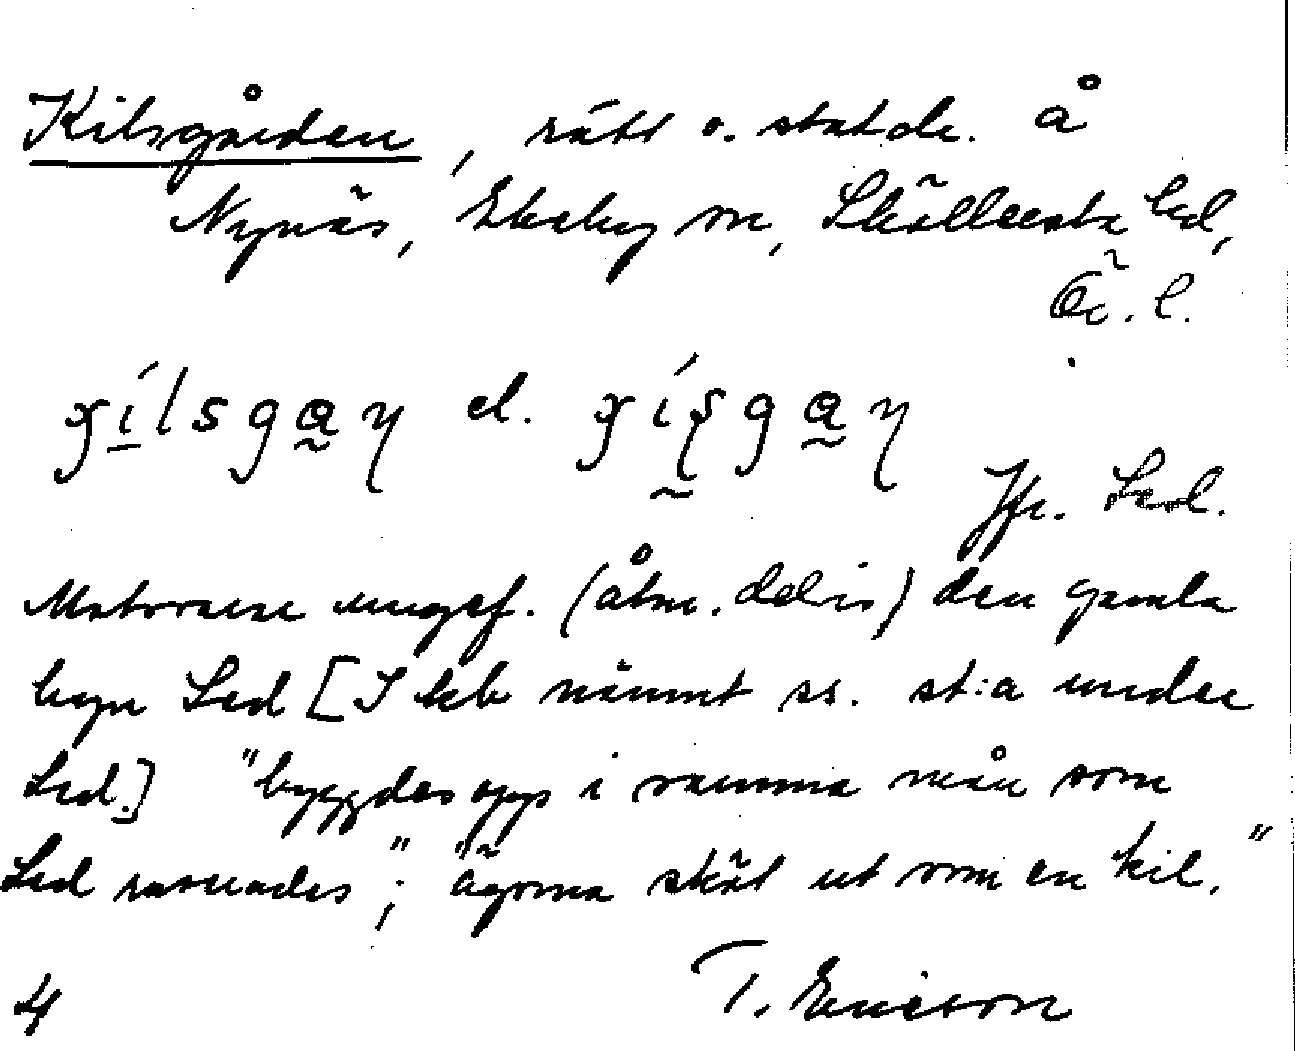 Kilsgården, sätt o. statdr. å
Nynäs, Ekeby sn, Sköllersta hd,
Ör. l.
el.
Jfr. Led.
Motsvarar ungef. (åtm. delvis) den gamla
byn Led [I kb nämnt ss. st:a under
Led.] "byggdes opp i samma mån som
Led raserades"; "ägorna sköt ut som en kil."
T. Ericson
4